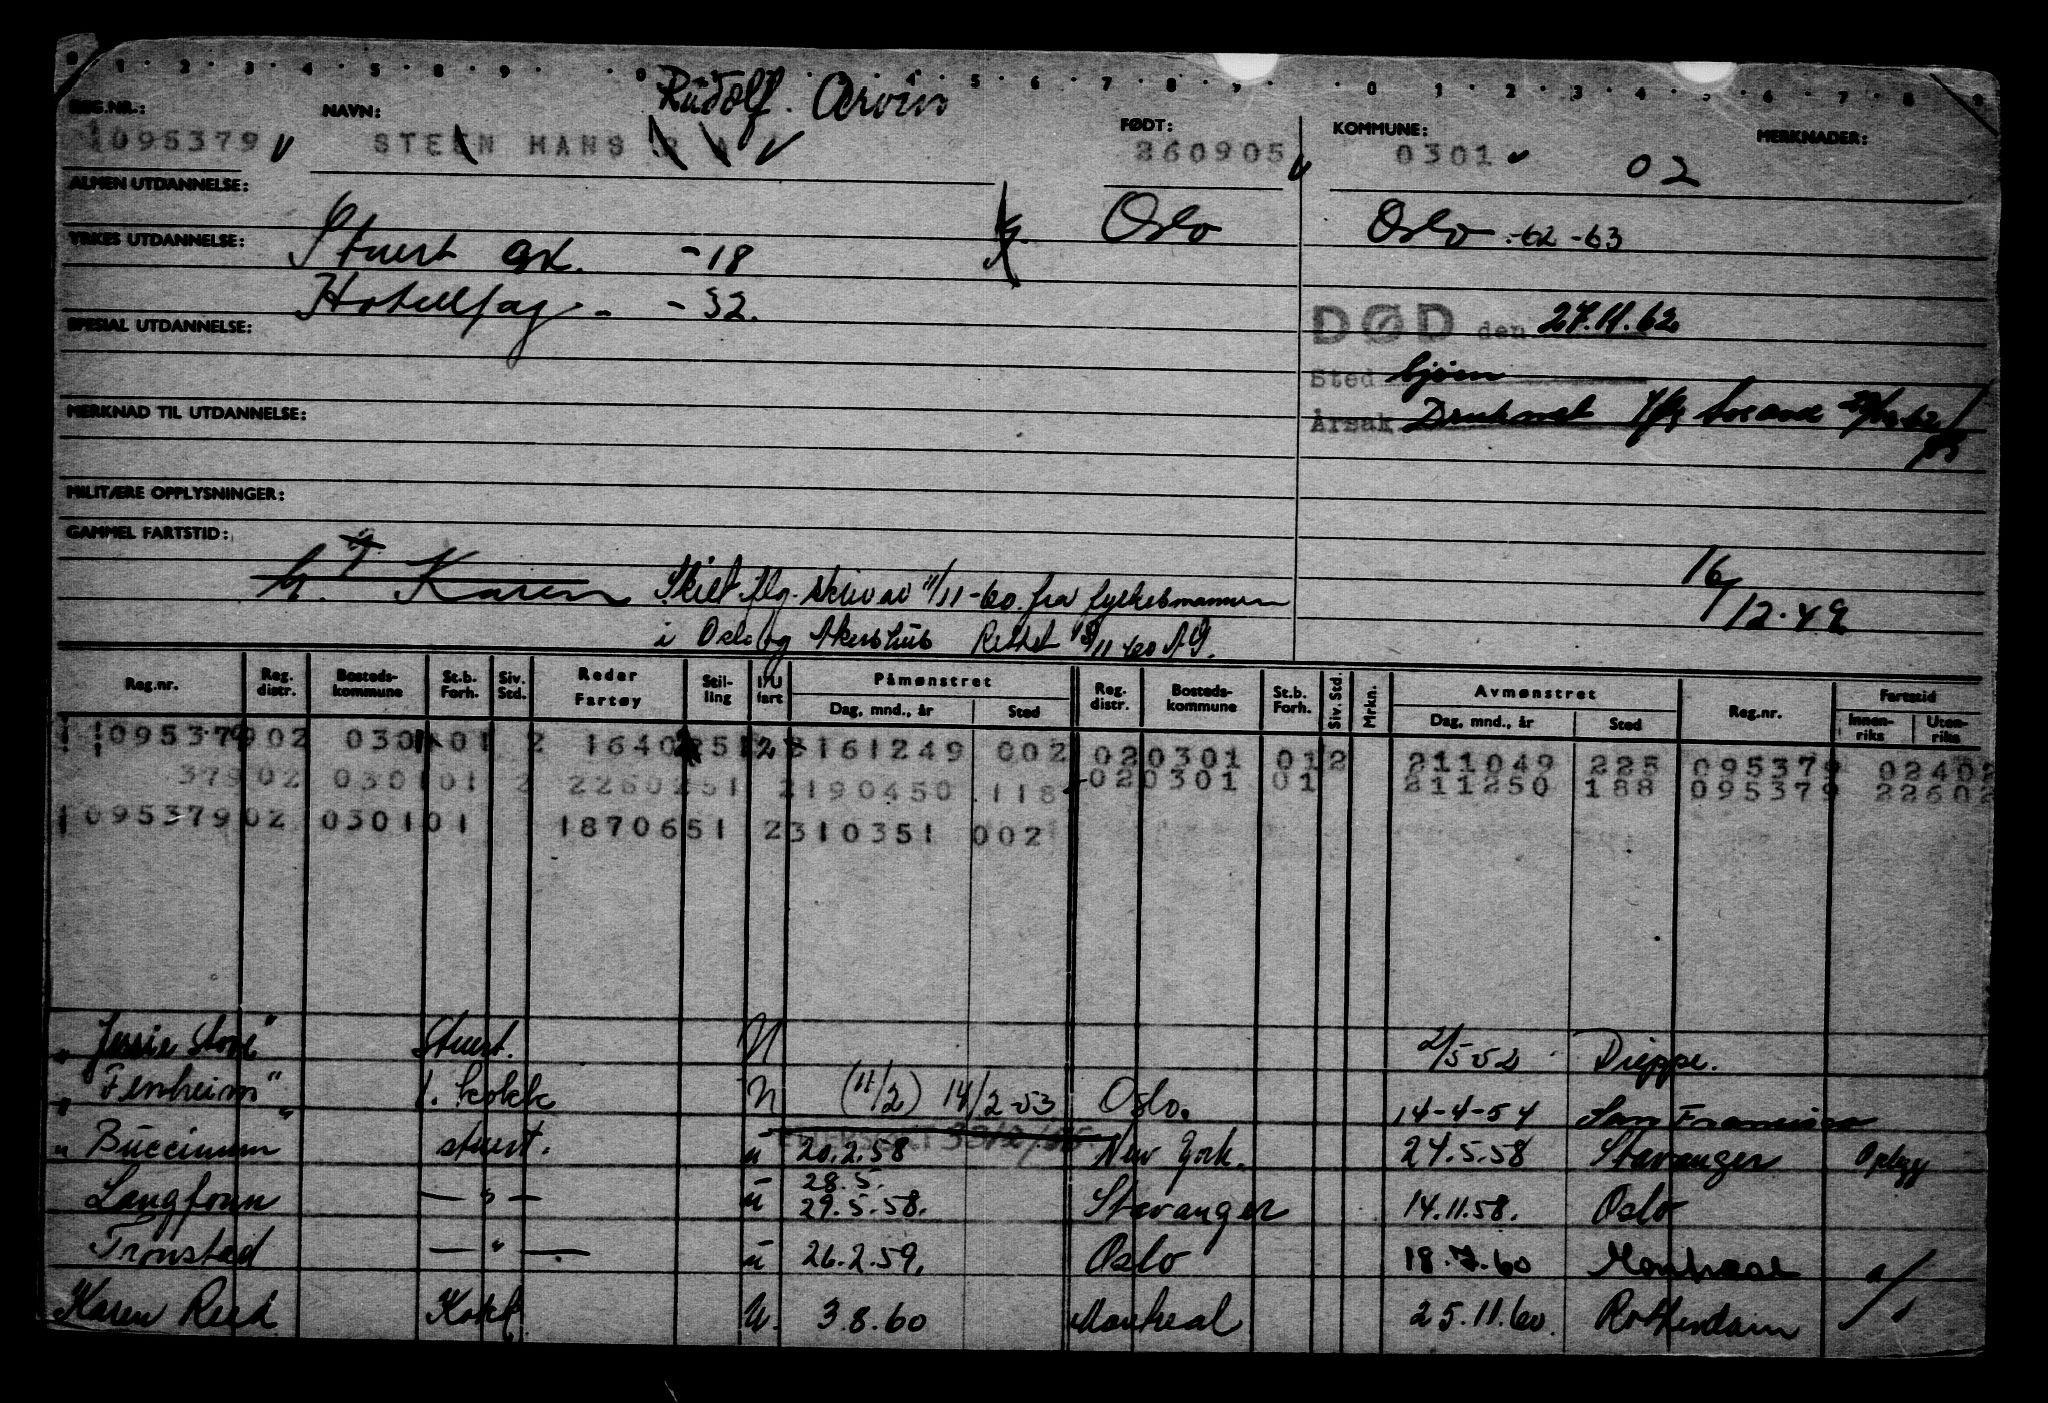 Rudolf. Arvin
REG.NR.: NAVN: FØDT: KOMMUNE: MERKNADER:
1095379 STEEN HANS R A 260905 0301 02
ALMEN UTDANNELSE:
Oslo Oslo -62 -63
YRKES UTDANNELSE: Stuert gk. -18
Hotellfag - -32.
SPESIAL UTDANNELSE:
DØD den 27.11.62
Sted Gjøen
MERKNAD TIL UTDANNELSE:
Årsak Druknet
MILITÆRE OPPLYSNINGER:
GAMMEL FARTSTID:
Karen Skilt flg. skriv av 11/11-60 fra fylkesmannen
i Oslo og Akershus Rettet 18/11-60
16/12.49
Reg.nr. Reg. distr. Bosteds- kommune St.b. Forh. Siv. Std. Reder Fartøy Stil- ling I/U fart Påmønstret Dag, mnd., år Sted Reg. distr. Bosteds- kommune St.b. Forh. Siv. Std. Mrkn. Avmønstret Dag, mnd., år Sted Reg.nr. Fartstid Innen- riks Uten- riks
1095379 02 0301 01 2 1640 251 2 161249 002 02 0301 01 2 211049 225 095379 02402
379 02 0301 01 2 2260251 2190450 118 02 0301 01 211250 188 095379 22602
1095379 02 0301 01 1870651 2310351 002
" Jessie Stove" Stuert. U 2/5-52 Dieppe.
" Fernheim" 1. kokk U (11/2) 14/2-53 Oslo. 14-4-54 San Francisco
" Buccinum" stuert. u 20.2.58 New York. 24.5.58 Stavanger Oplegg
Langfonn — " — u 28.5. 29.5.58. Stavanger 14.11.58. Oslo
Tronstad — " — u 26.2.59. Oslo 18.7.60 Montreal
Karen Reed Kokk U. 3.8.60 Montreal 25.11.60. Rotterdam